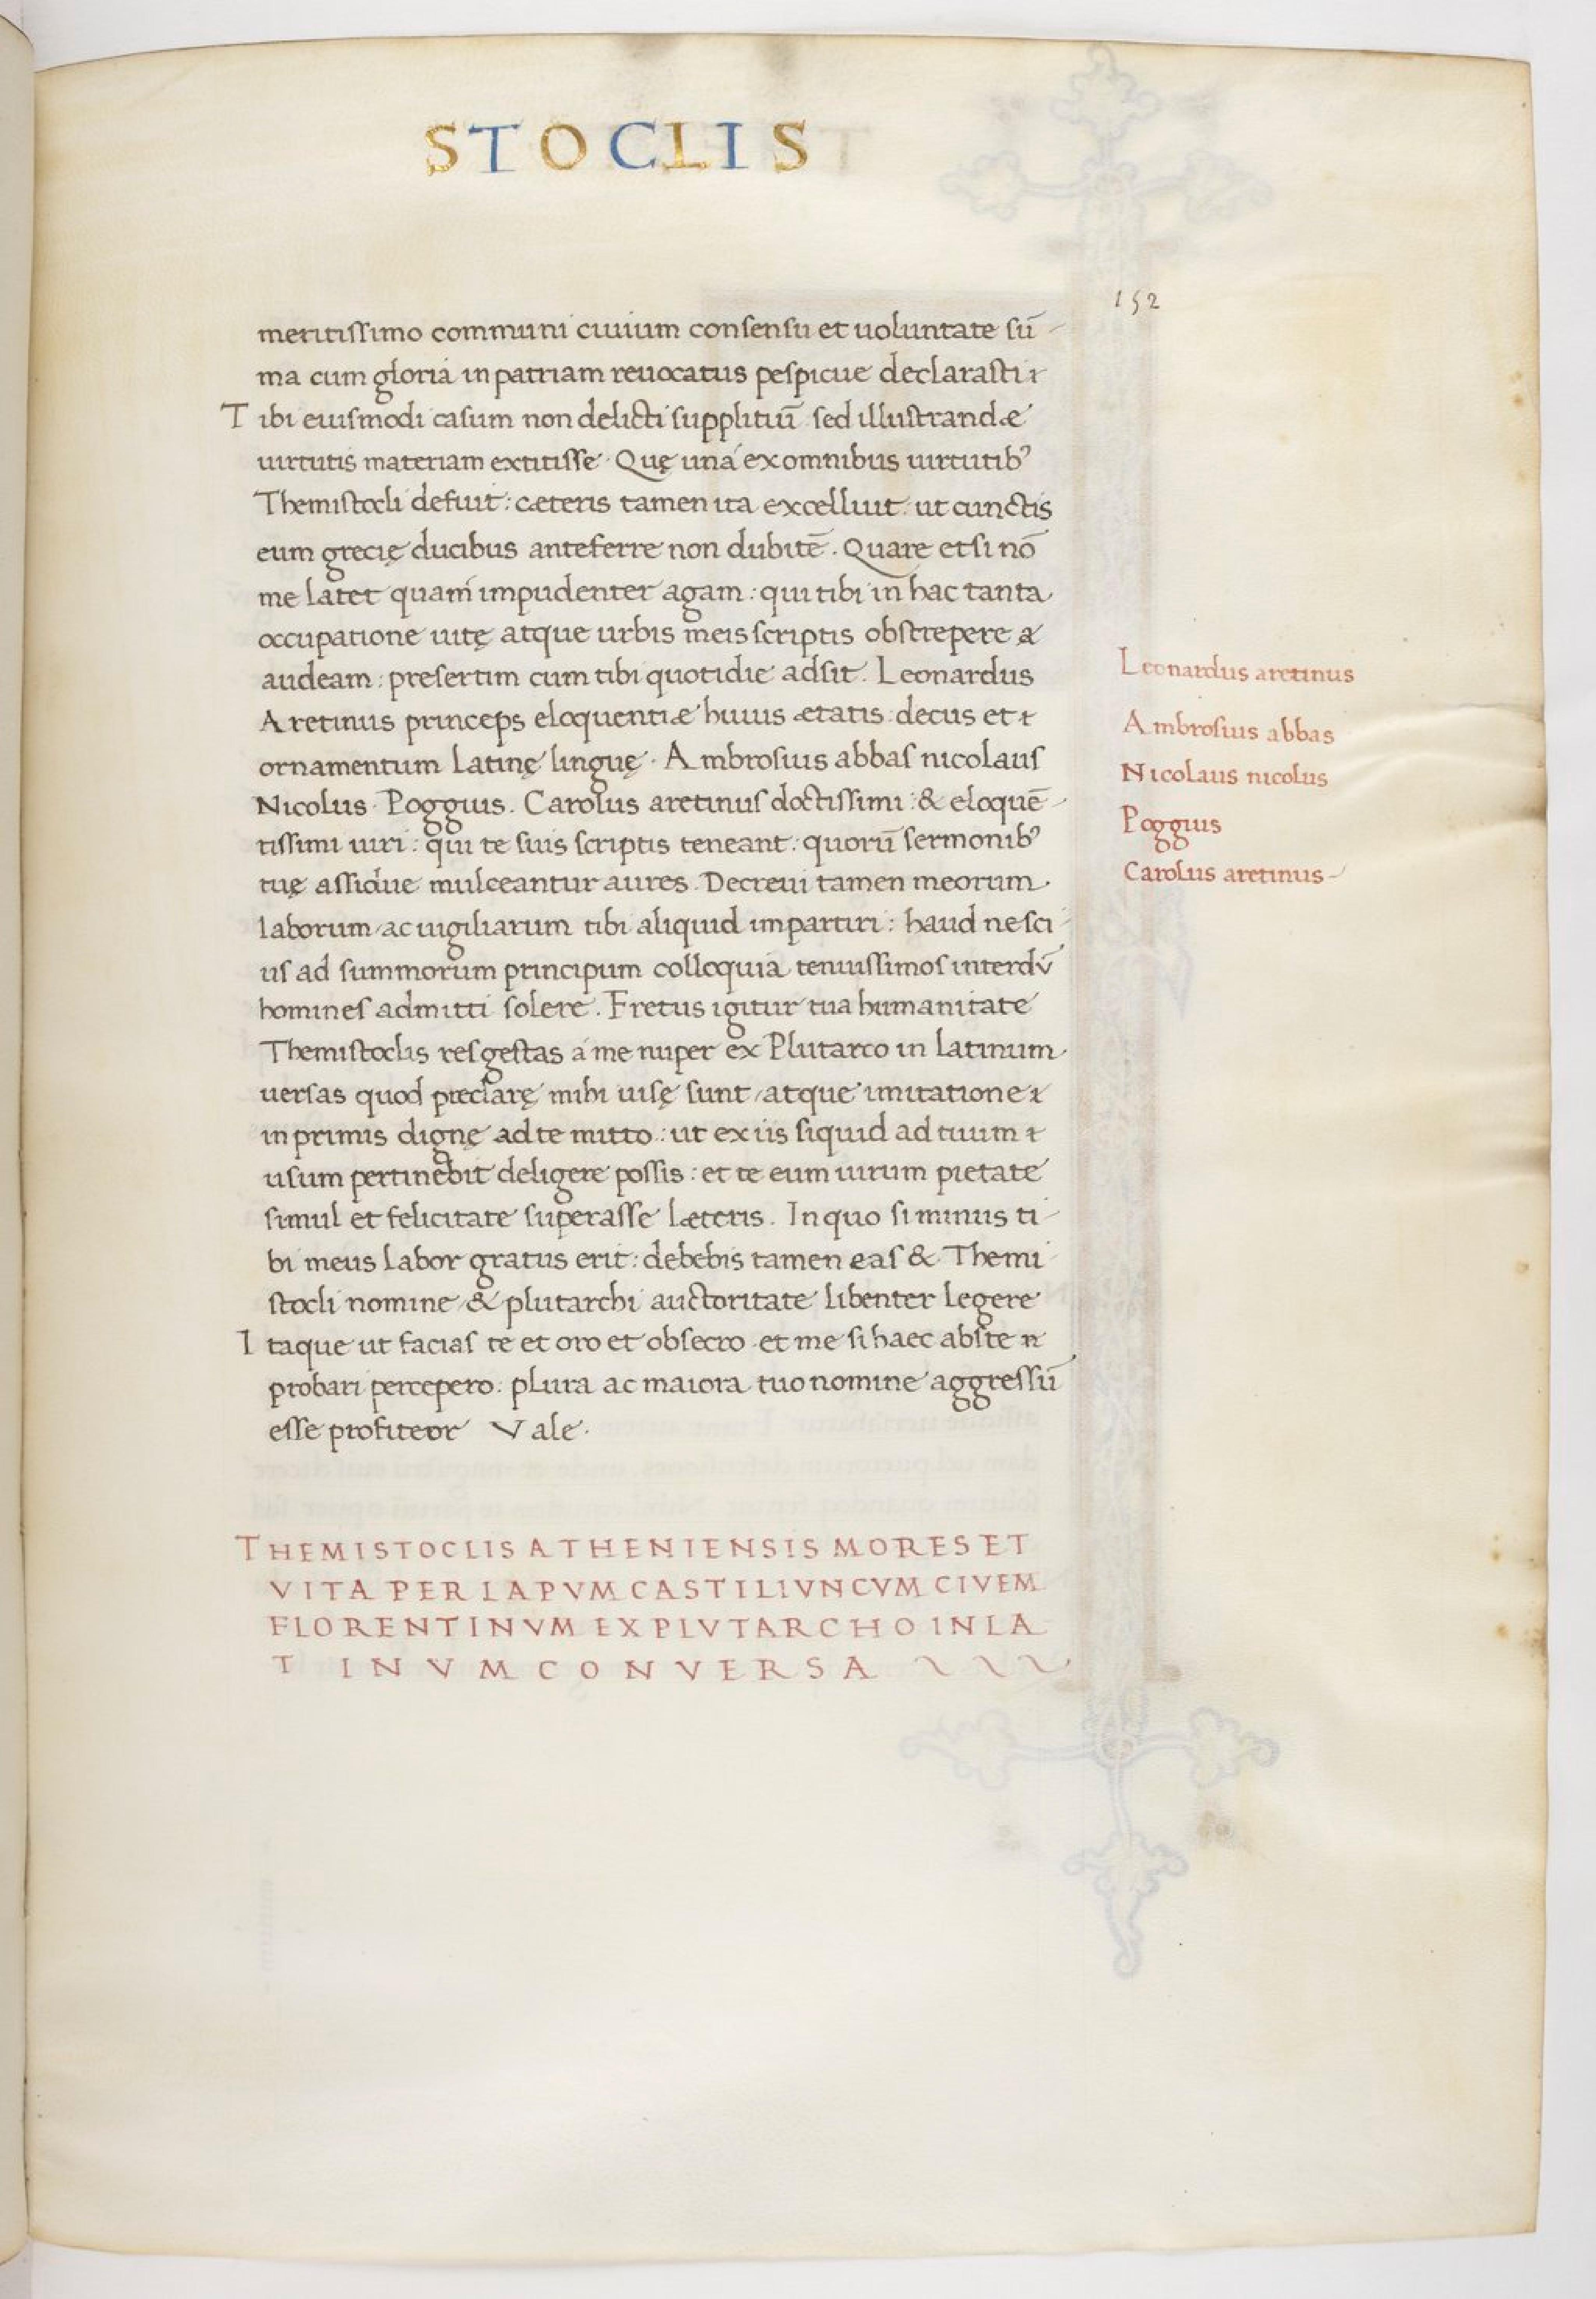 STOCLIS
152
meritissimo communi ciuium consensu et uoluntate sū-
ma cum gloria in patriam reuocatus pespicue declarasti
Tibi eiusmodi casum non delicti supplitiū sed illustrandæ
uirtutis materiam extitisse. Quę una ex omnibus uirtutibꝰ
Themistocli defuit: cæteris tamen ita excelluit: ut cunctis
eum grecię ducibus anteferre non dubitē. Quare etsi nō
me latet quam impudenter agam: qui tibi in hac tanta
occupatione uitę atque urbis meis scriptis obstrepere
audeam: presertim cum tibi quotidie adsit. Leonardus
Aretinus princeps eloquentiæ huius ætatis: decus et
ornamentum latinę linguę. Ambrosius abbas nicolaus
Nicolus. Poggius. Carolus aretinus doctissimi: & eloquē-
tissimi uiri: qui te suis scriptis teneant: quorū sermonibꝰ
tuę assidue mulceantur aures. Decreui tamen meorum
laborum, ac uigiliarum tibi aliquid impartiri: haud nesci-
us ad summorum principum colloquia tenuissimos interdū
homines admitti solere. Fretus igitur tua humanitate
Themistoclis res gestas a me nuper ex Plutarco in latinum
uersas quod preclarę mihi uisę sunt, atque imitatione
in primis dignę ad te mitto: ut ex iis siquid ad tuum
usum pertinebit deligere possis: et te eum uirum pietate
simul et felicitate superasse læteris. In quo si minus ti-
bi meus labor gratus erit: debebis tamen eas & Themi-
stocli nomine, & plutarchi auctoritate libenter legere
Itaque ut facias te et oro et obsecro. et me si haec abs te
probari percepero: plura ac maiora tuo nomine aggressū
esse profiteor Vale.
Leonardus aretinus
Ambrosius abbas
Nicolaus nicolus
Poggius
Carolus aretinus-
THEMISTOCLIS ATHENIENSIS MORES ET
VITA PER LAPVM CASTILIVNCVM CIVEM
FLORENTINVM EX PLVTARCHO IN LA
TINVM CONVERSA